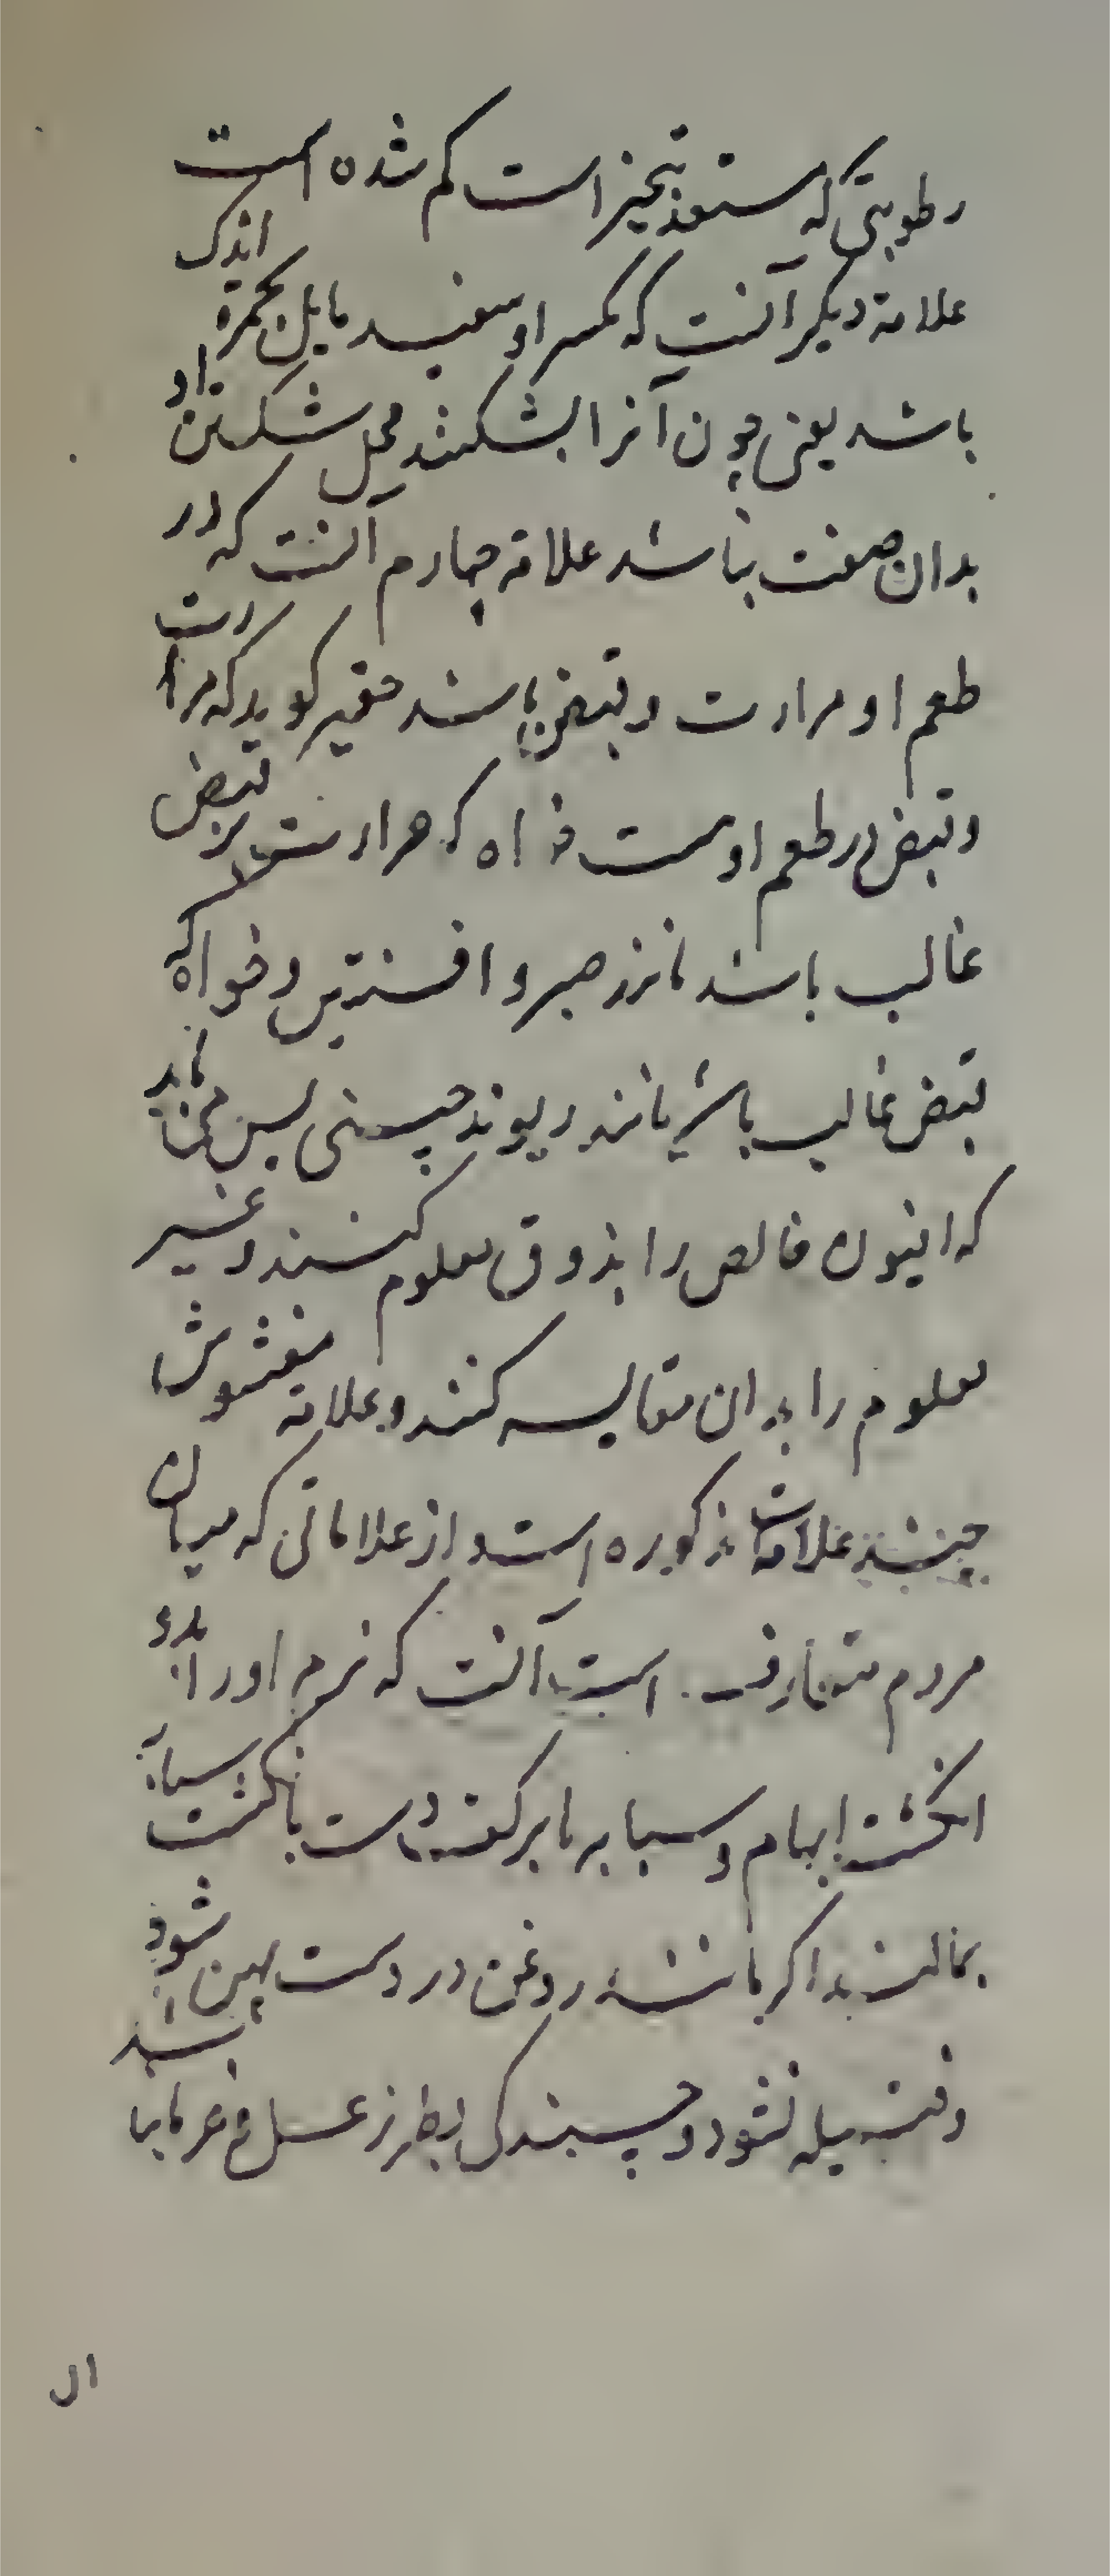 رطوبتی که مستعد تبخیر است کم شده است
علامة دیکر آنست که مکسر او سفید مایل بحمرة اندک
باشد یعنی چون آنرا بشکنند محل شکستن او
بدان صفت نباشد علامة چهارم آنست که در
طعم او مرارت و قبض باشد حقیر کوید که مرارت
و قبض در طعم اوست خواه که مرارت بر قبض
غالب باشد مانند صبر و افسنتین و خواه که
قبض غالب باشد مانند ریوند چینی پس می باید
که افیون خالص را بذوق معلوم کنند و غیر
معلوم را بدان مقایسه کنند و علامة مغشوش
علامات مذکوره است و از علاماتی که میان
مردم متعارف است آنست که نرم او را بدو
انکشت ابهام و سبابه یا بر کف دست بانکشت سبابه
بمالند اکر مانند روغن در دست پهن شود
و فتیله نشود و چسبندکی بطرز عسل باشد
ال